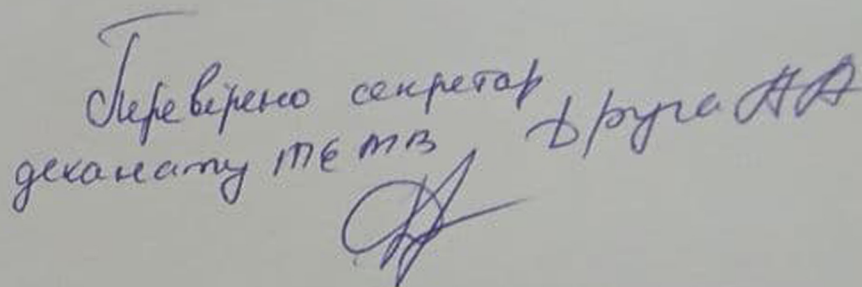 Перевірено секретар
деканату ТЕ тв Друга АА